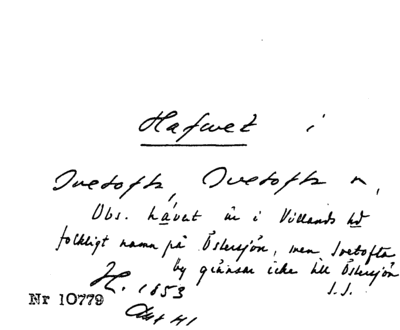 Hafwet i
Ivetofta, Ivetofta sn,
Obs. håvet är i Villands hd
folkligt namn på Östersjön, men Ivetofta
by gränsar icke till Östersjön
H. 1853 I.I.
Nr 10779
Akt 41